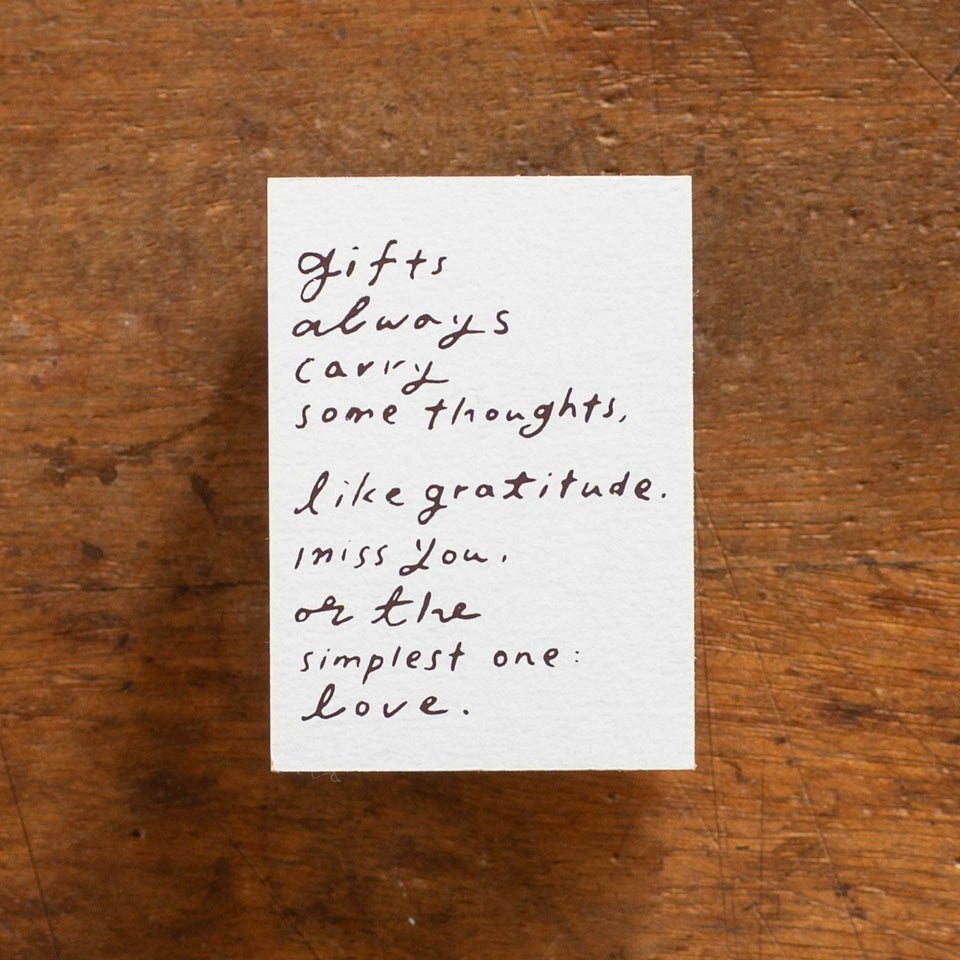 gifts
always
carry
some thoughts,
like gratitude.
miss you,
or the
simplest one:
love.